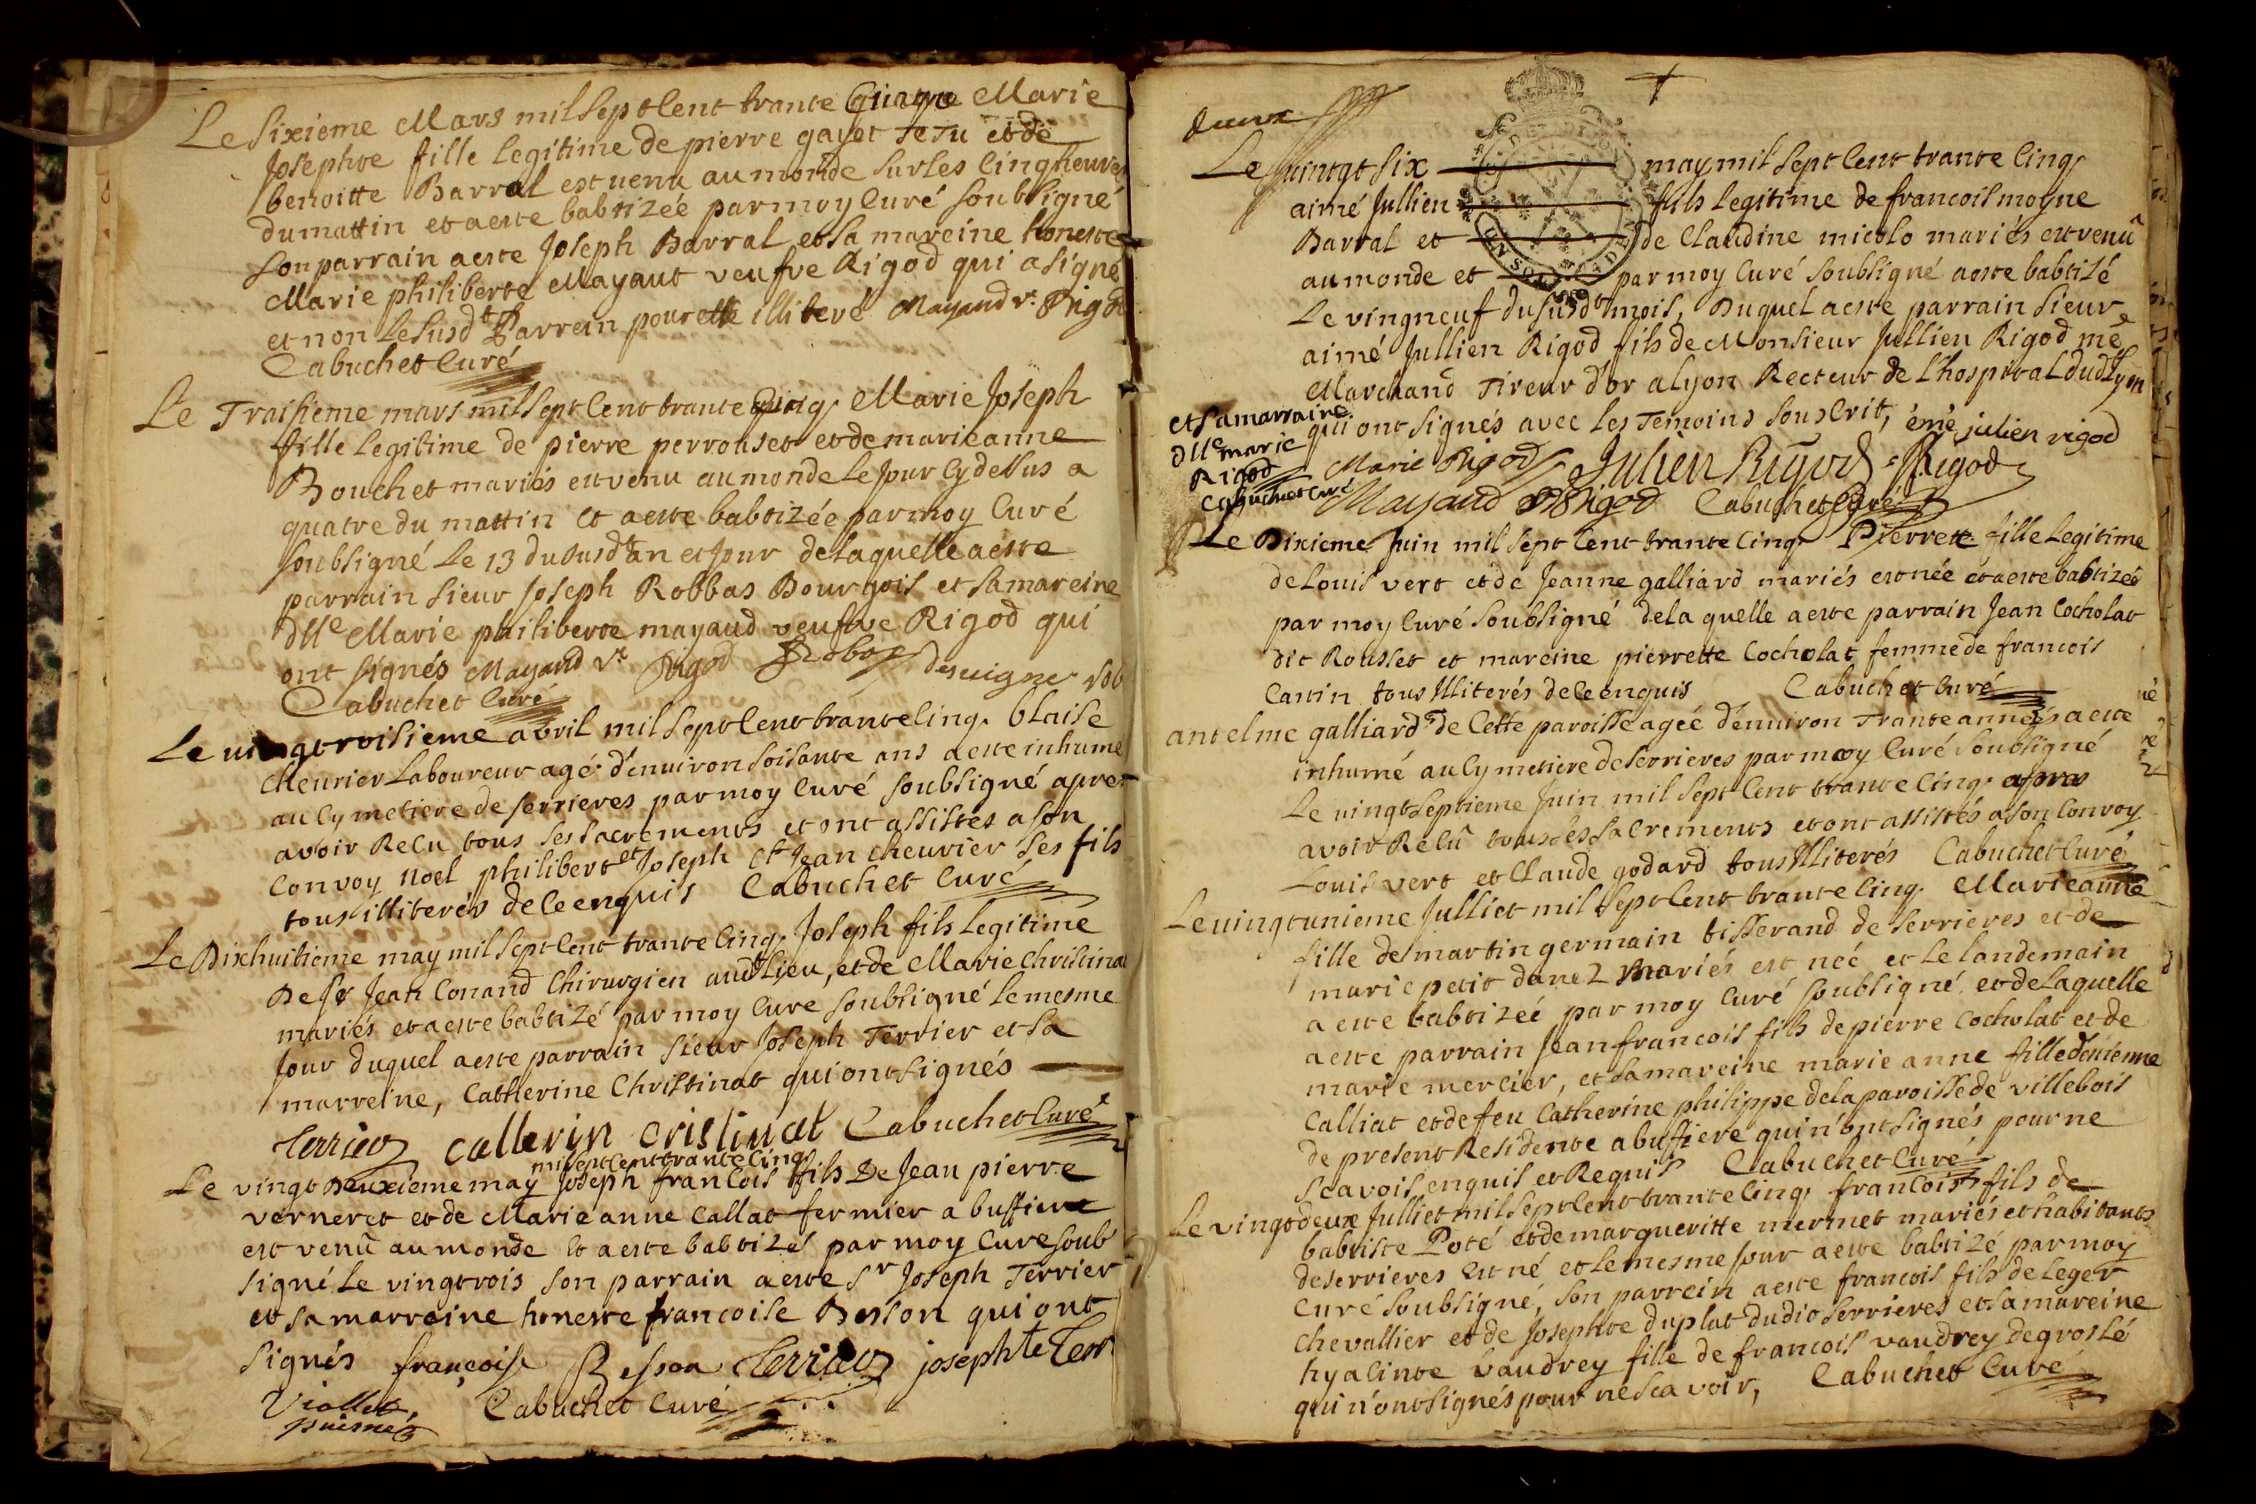 Le sixieme Mars mil sept Cent trante Marie
Josephte fille legitime de pierre gayet et de
benoitte Barral est venu au monde sur les cinq heures
du mattin et a este babtizée par moy Curé soubsigné
son parrain a este Joseph Barral et sa mareine honeste
Marie philiberte Mayaut veufve Rigod qui a signé
et non le susdt Parrein pour illiteré Mayaud ve Rigod
Cabuchet Curé
Le Traisieme mars mil sept Cent trante Cinq. Marie Joseph
fille legitime de pierre perrouset et de marie anne
Bouchet mariés est venu au monde le jour cy dessus a
quatre du mattin et a este babtizée par moy Curé
soubsigné Le 13 du susdt an et jour de laquelle a este
parrain sieur Joseph Robbas Bourgois et sa mareine
dlle Marie philiberte mayaud veufve Rigod qui
ont signés Mayaud ve Rigod
Cabuchet Curé
Le vingtroisieme abvril mil sept Cent trante Cinq. blaise
Cheurier Laboureur agé d'enuiron soisante ans a este inhumé
au Cymetiere de serrieres par moy Curé soubsigné apres
avoir Recu tous ses sacrements et ont assistés a son
Convoy noel philibert et Joseph et Jean cheurier ses fils
tous illiterés de ce enquis Cabuchet Curé
Le Dixhuitieme may mil sept Cent trante Cinq. Joseph fils legitime
De Sr Jean Conand Chirurgien audt lieu, et de Marie Christinat
mariés et a este babtizé par moy Cure soubsigné le mesme
Jour duquel a este parrain sieur Joseph Terrier et sa
marreine, Catherine Christinat qui ont signés
Terrier catterin cristinat Cabuchet Curé
mil sept Cent trante Cinq
Le vingt Deuxieme may Joseph francois fils De Jean pierre
verneret et de Marie anne Callat fermier a buffiere
est venû au monde et a este babtizés par moy Cure soub
signé Le vingtrois son parrain a este Sr Joseph Terrier
et sa marreine honeste francoise Besson qui ont
signés françoise Besson Terrier josephte Terr
Viallet Cabuchet Curé
puisné
deux
Le vintgt six may mil sept Cent trante Cinq
aimé Jullien fils legitime de francois moyne
Barral et de Claudine micolo mariés est venû
au monde et par moy Curé soubsigné a este babtizé
Le vingneuf du susdt mois, Duquel a este parrain sieur
aimé Jullien Rigod fils de Monsieur Jullien Rigod me
Marchand Tireur d'or a Lyon Recteur de L'hospital dudt Lyon
et sa marraine
dlle marie
Rigod
Cabuchet curé
qui ont signés avec les Temoins souscrit, émé julien rigod
Marie Rigod Julien Rigod Rigod
Mayaud Rigod Cabuchet Curé
Le Dixieme Juin mil sept Cent trante Cinq Pierrette fille legitime
de Louis vert et de Jeanne galliard mariés est née et a este babtizée
par moy Curé soubsigné de la quelle a este parrain Jean Cocholat
dit Rousset et mareine pierrette Cocholat femme de francois
Cartin tous Illiterés de ce enquis Cabuchet Curé
antelme galliard de Cette paroisse agée d'enuiron Trante années a este
inhumé au Cymetiere de serrieres par moy Curé soubsigné
Le vingt septieme Juin mil sept Cent trante Cinq. apres
avoir Recû tous ses sacrements et ont assistés a son Convoy
Louis vert et Claude godard tous Illiterés Cabuchet Curé
Le vingt unieme Julliet mil sept Cent trante Cinq. Marie anne
fille de martin germain tisserand de serrieres et de
marie petit danez mariés est née et Le landemain
a este babtizeé par moy Curé soubsigné et de Laquelle
a este parrain Jean francois fils de pierre Cocholat et de
marie mercier, et sa mareine marie anne fille d'etienne
Calliat et de feu Catherine philippe de la paroisse de villebois
de present Residente a buffiere qui n'ont signés pour ne
scavoir enquis et Requis Cabuchet Curé
Le vingt deux Julliet mil sept Cent trante Cinq. francois fils de
babtiste Poté et de margueritte mermet mariés et habitants
de serrieres est né et le mesme jour a este babtizé par moy
Curé soubsigné, son parrein a este francois fils de Leger
chevallier et de Josephte duplat dudit serrieres et sa mareine
hyacinte vaudrey fille de francois vaudrey de groslé
qui n'ont signés pour ne scavoir, Cabuchet Curé